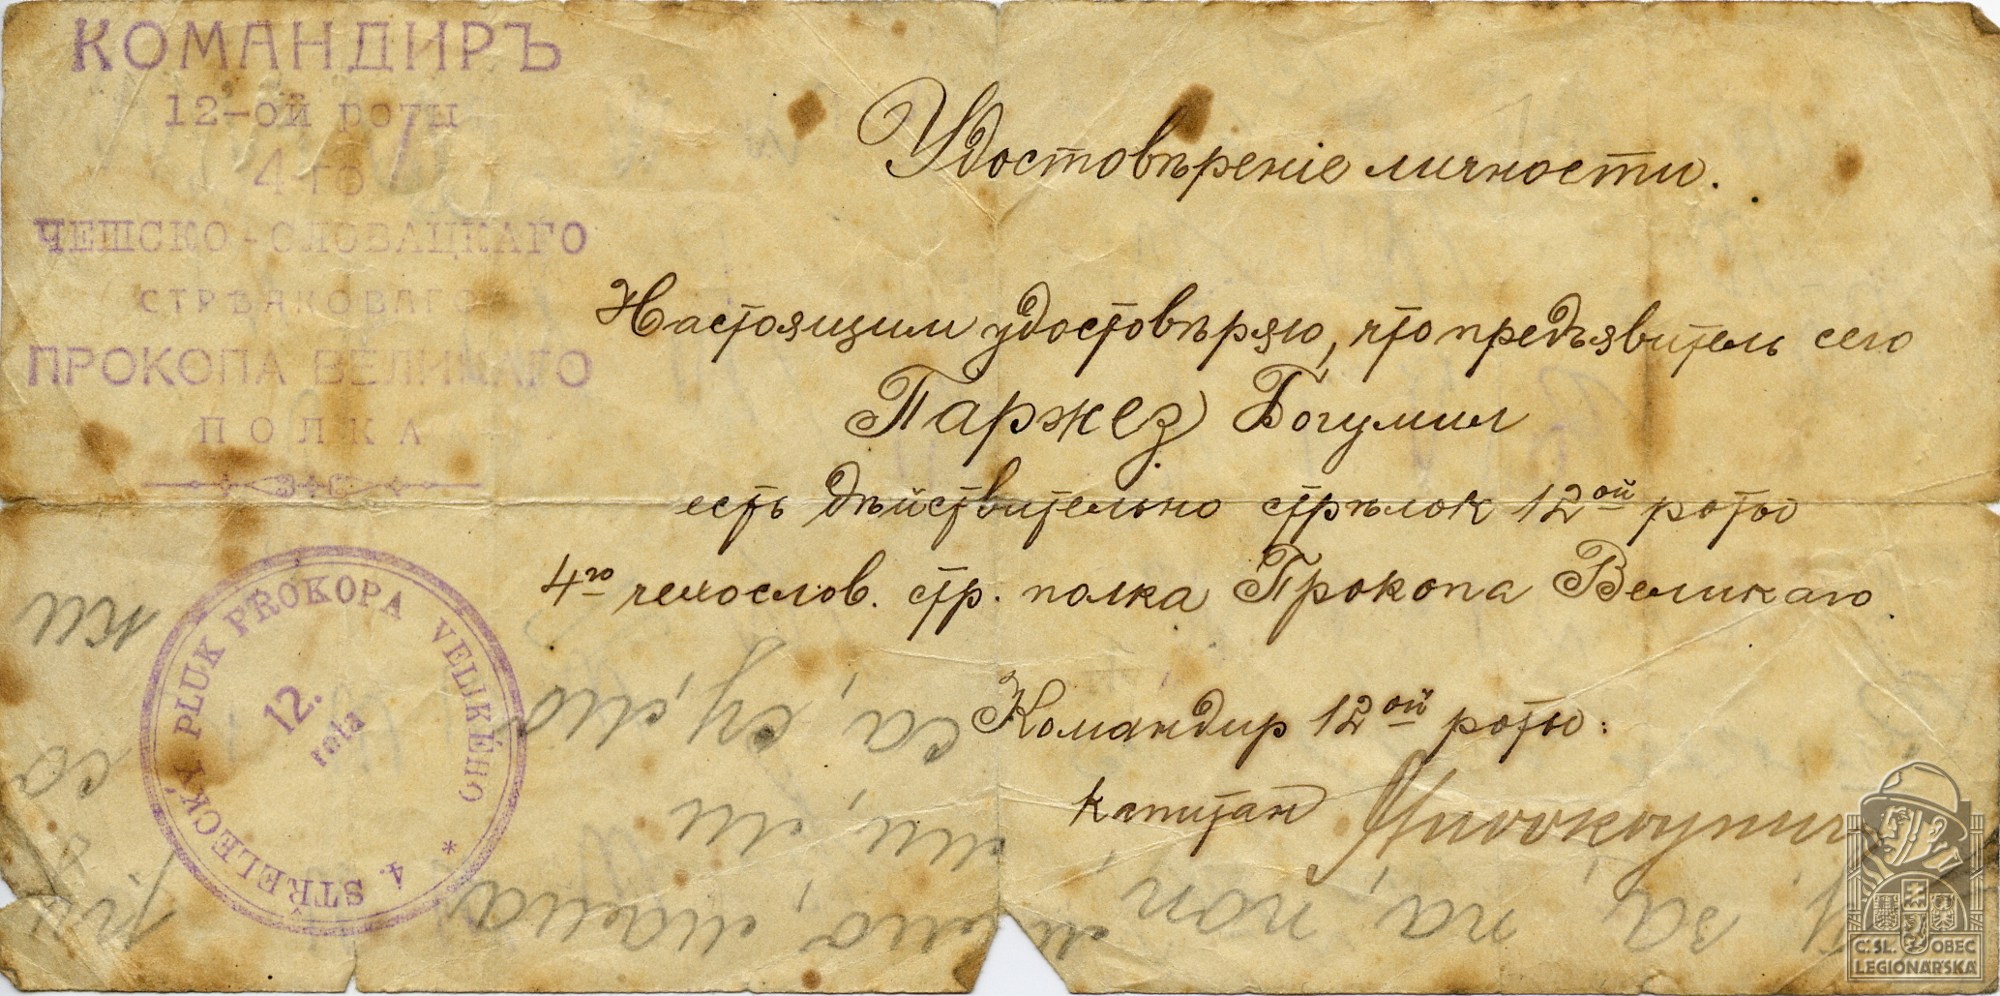 КОМАНДИРЪ
12-ой роты
4-го
ЧЕШСКО-СЛОВАЦКАГО
СТРѢЛКОВАГО
ПРОКОПА ВЕЛИКАГО
ПОЛКА
Удостовѣреніе личности.
Настоящим удостовѣряю, что предъявитель сего
Паржез Богумил
есть дѣйствительно стрѣлок 12ой роты
4го чехослов. стр. полка Прокопа Великаго.
Командир 12ой роты:
капитан
4. STŘELECKÝ PLUK PROKOPA VELIKÉHO *
12.
rota
Č.SL. OBEC
LEGIONÁŘSKÁ